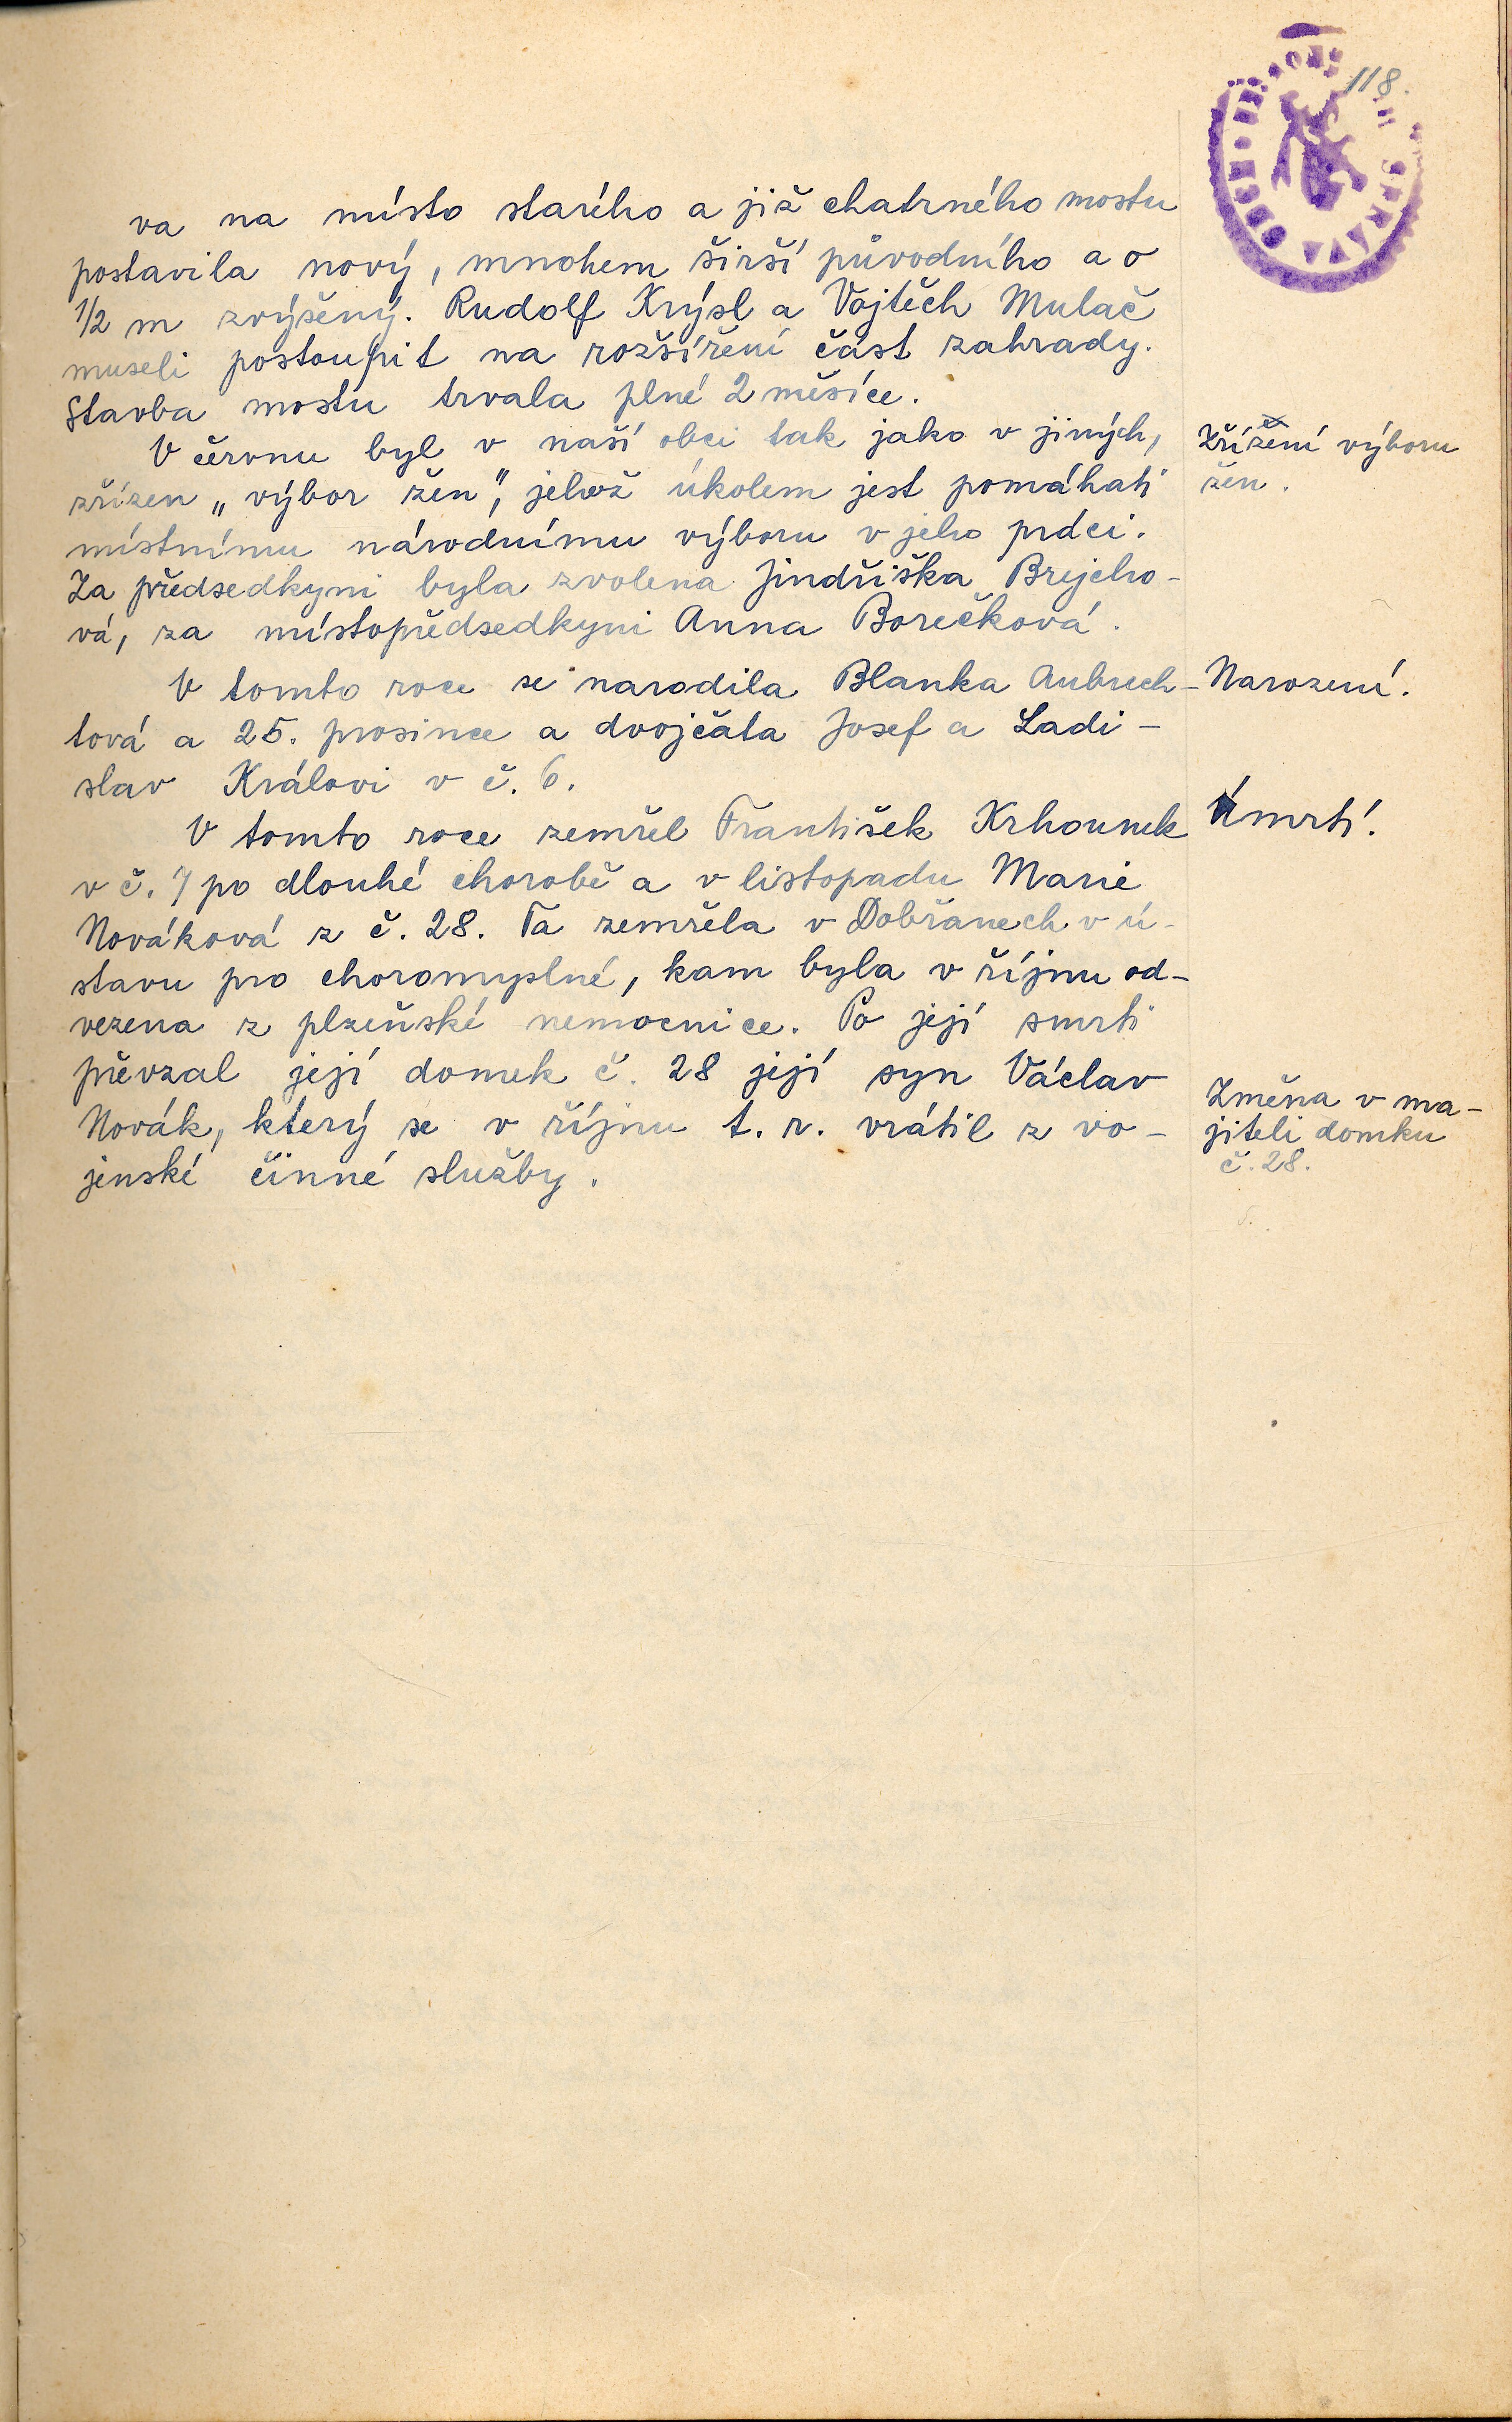 118.
va na místo starého a již chatrného mostu
postavila nový, mnohem širší původního a o
1/2 m zvýšený. Rudolf Krýsl a Vojtěch Mulač
museli postoupit na rozšíření část zahrady.
Stavba mostu trvala plné 2 měsíce.
V červnu byl v naší obci tak jako v jiných,
zřízen „výbor žen", jehož úkolem jest pomáhati
místnímu národnímu výboru v jeho práci.
Za předsedkyni byla zvolena Jindřiška Brejcho-
vá, za místopředsedkyni Anna Borečková.
Zřízení výboru
žen.
V tomto roce se narodila Blanka Aubrech-
tová a 25. prosince a dvojčata Josef a Ladi-
slav Královi v č. 6.
Narození.
V tomto roce zemřel František Krhounek
v č. 7 po dlouhé chorobě a v listopadu Marie
Nováková z č. 28. Ta zemřela v Dobřanech v ú-
stavu pro choromyslné, kam byla v říjnu od-
vezena z plzeňské nemocnice. Po její smrti
převzal její domek č. 28 její syn Václav
Novák, který se v říjnu t. r. vrátil z vo-
jenské činné služby.
Úmrtí.
Změna v ma-
jiteli domku
č. 28.